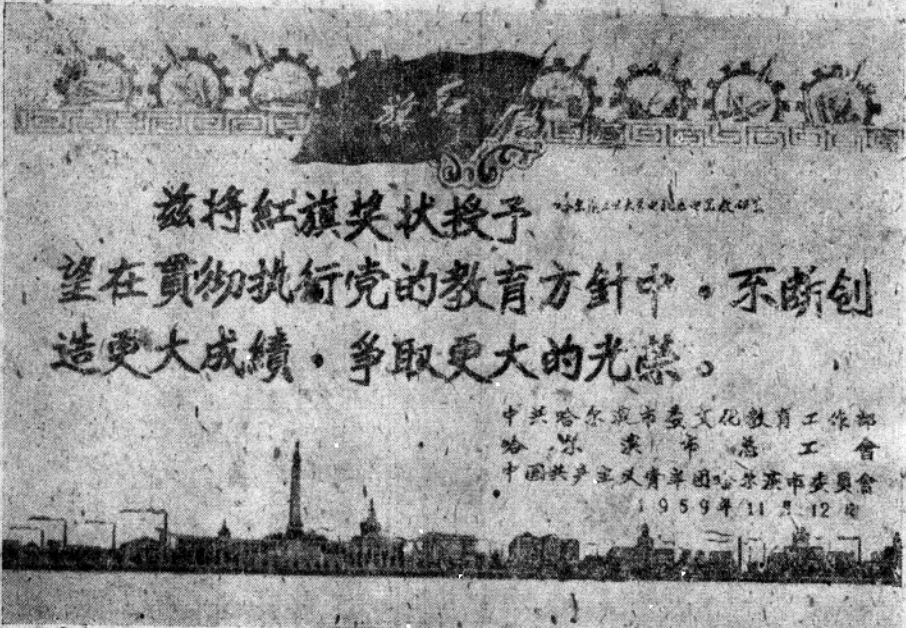 紅旗
兹将紅旗奖状授予 哈尔滨工业大学电机
望在貫彻执行党的教育方針中，不断创
造更大成績，爭取更大的光荣。
中共哈尔滨市委文化教育工作部
哈尔滨市总工會
中国共产主义青年团哈尔滨市委員會
1959年11月12日